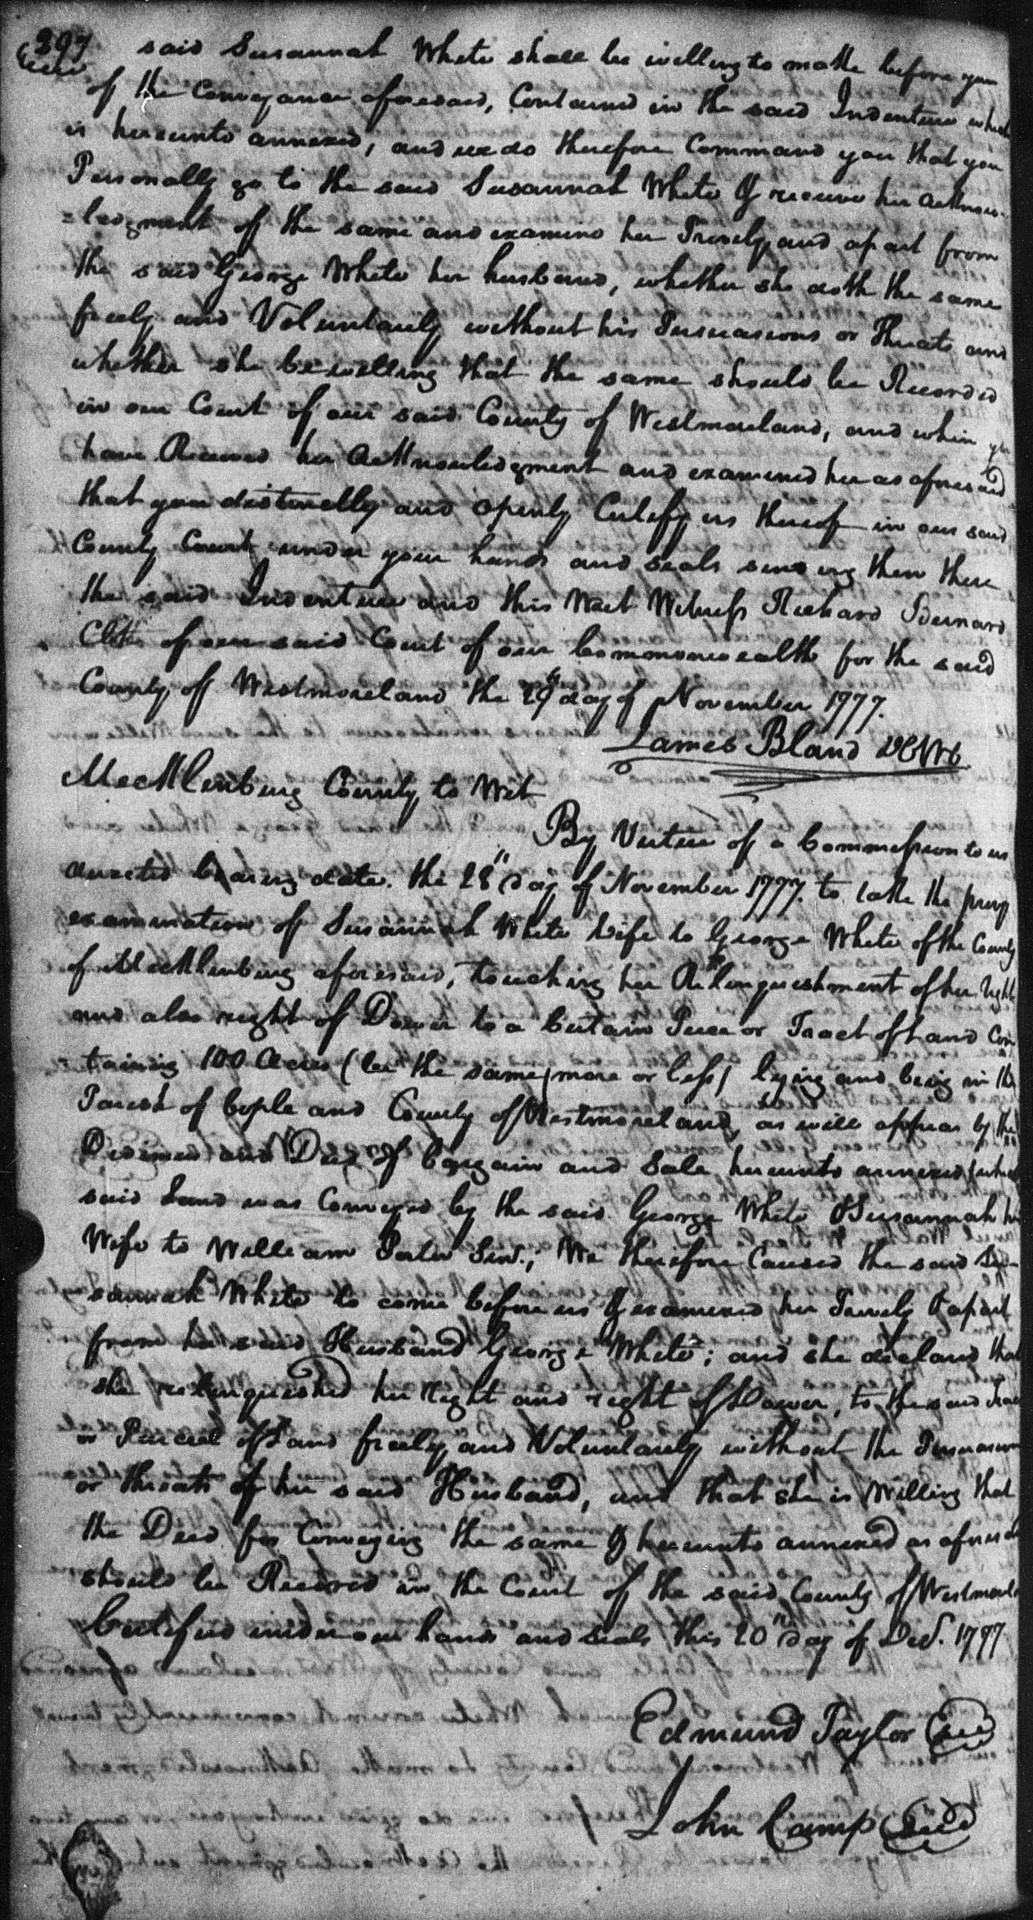 297
said Susannah White shall be willing to make before you
of the Conveyance aforesaid, Contained in the said Indenture which
is hereunto annexed, and we do therefore Command you that you
Personally go to the said Susannah White & receive her acknow-
=ledgment of the same and examine her Prively and apart from
the said George White her husband, whether she doth the same
freely and Voluntarily without his Persuasions or Threats and
whether she be willing that the same should be Recorded
in our Court of our said County of Westmoreland, and when you
have Received her Acknowledgment and examined her as aforesaid
that you distinctly and openly Certify us thereof in our said
County Court under your hands and seals sending then there
the said Indenture and this Writ Witness Richard Bernard
Clerk of our said Court of our Commonwealth for the said
County of Westmoreland the 29th day of November 1777.
James Bland DCWC
Mecklenburg County to Wit
By Virtue of a Commission to us
directed bearing date the 28th Day of November 1777. to take the privy
examination of Susannah White Wife to George White of the County
of Mecklenburg aforesaid, touching her Relinquishment of her right
and also right of Dower to a Certain Piece or Tract of Land Con
=taining 100 Acres (be the same more or less) lying and being in the
Parish of Cople and County of Westmoreland, as will appear by the
Dedimus and Deed of Bargain and Sale hereunto annexed which
said Land was Conveyed by the said George White & Susannah his
Wife to William Porter Senr.; We therefore Caused the said Su-
sannah White to come before us & examined her Prively & apart
from her said Husband George White; and she declared that
she relinquished her right and right of Dower, to the said Tract
or Parcel of Land freely and Voluntarily without the Persuasions
or threats of her said Husband, and that she is Willing that
the Deed for Conveying the same & hereunto annexed as aforesaid
should be Record in the Court of the said County of Westmorld
Certified under our hands and Seals this 20th day of Decr. 1777
Edmund Taylor Seal
John Camp Seal